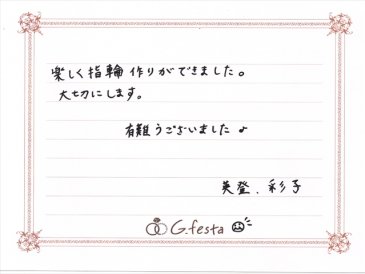 楽しく指輪作りができました。
大切にします。
有難うございました♪
英登、彩子
G.festa